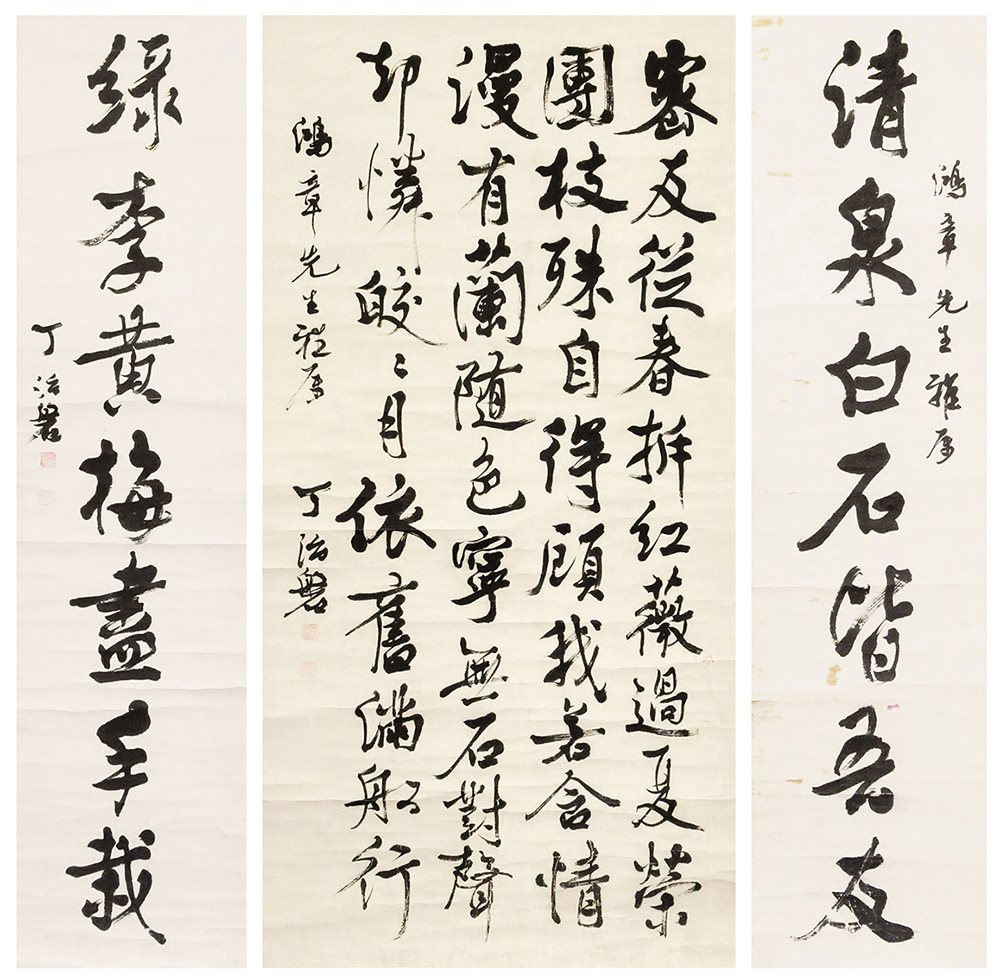 鴻章先生雅属
清泉白石皆吾友
密友從春拆紅薇過夏榮
團枝殊自得顧我若含情
漫有蘭隨色寧無石對聲
却憐皎〻月依舊滿船行
鴻章先生雅属
丁治磐
綠李黃梅盡手栽
丁治磐